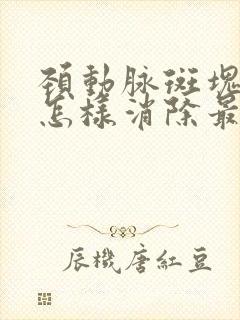 頸動脉斑塊
怎樣消除最
辰機唐紅豆